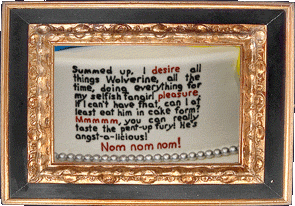 Summed up, I desire all
things Wolverine, all the
time, doing everything for
my selfish fangirl pleasure.
If I can't have that, can I at
least eat him in cake form?
Mmmmm, you can really
taste the pent-up fury! He's
angst-a-licious!
Nom nom nom!